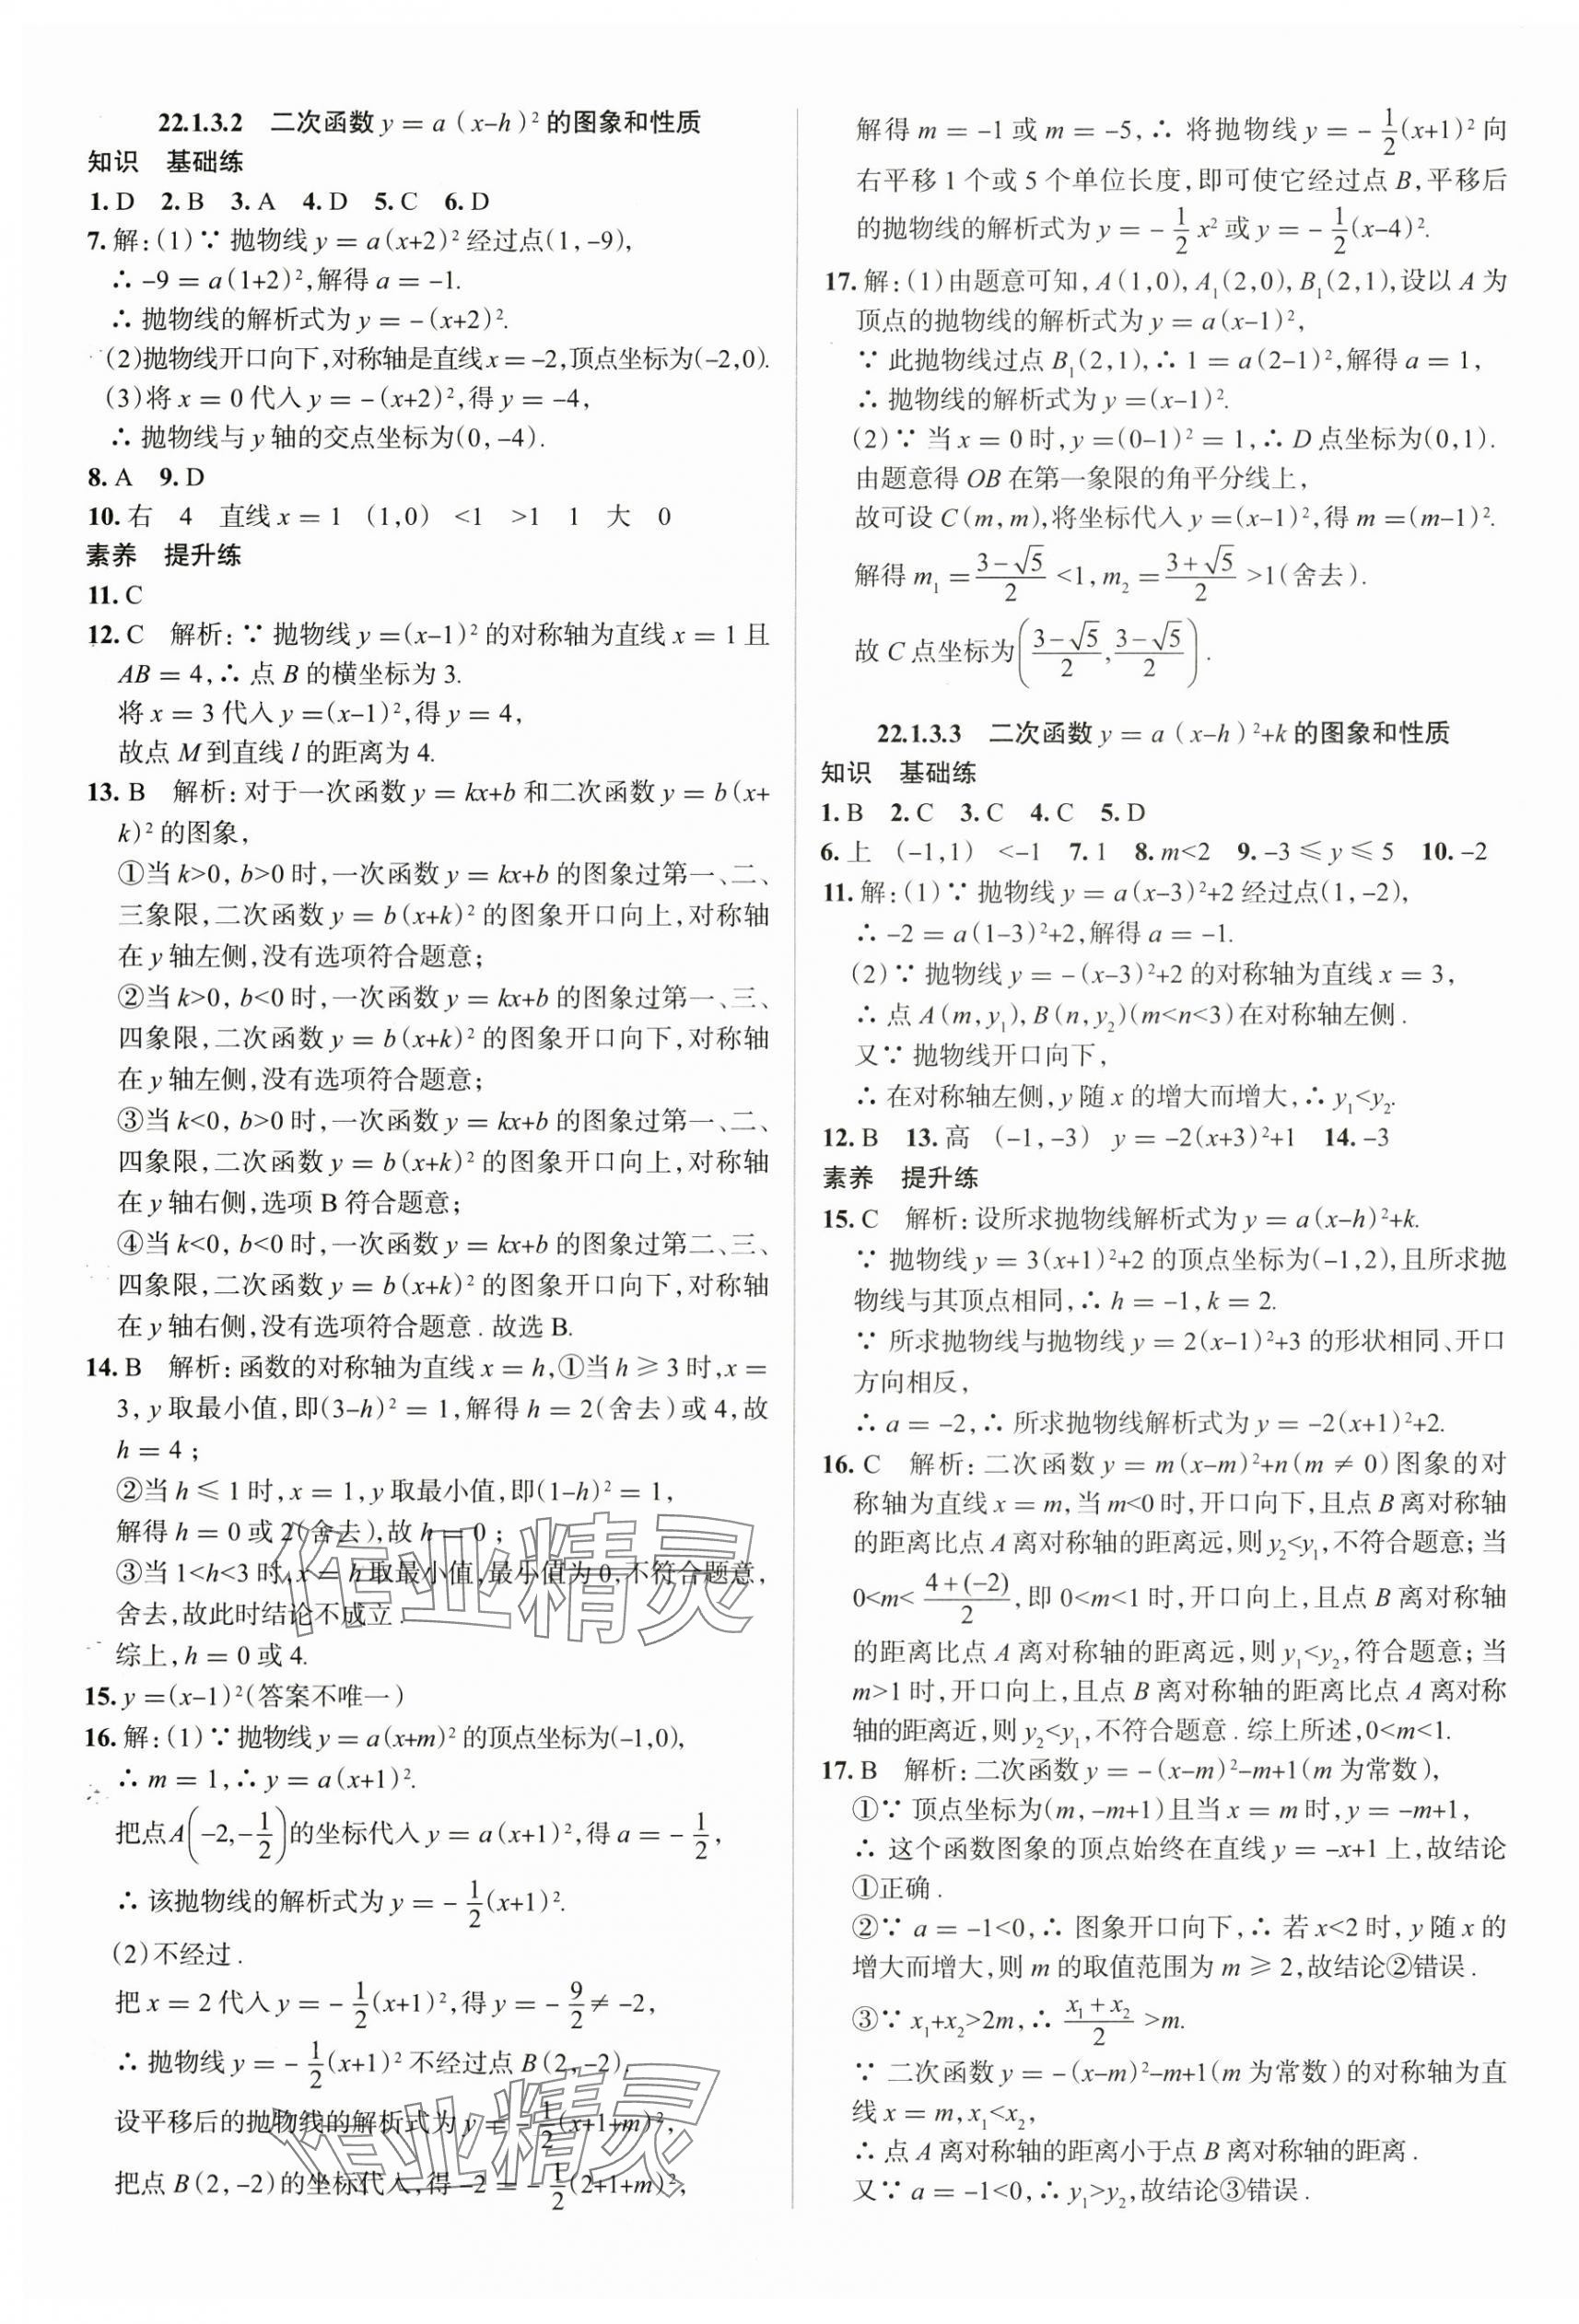 22.1.3.2 二次函数 y = a（x–h）² 的图象和性质
知识 基础练
1. D 2. B 3. A 4. D 5. C 6. D
7. 解：(1)∵ 抛物线 y = a(x+2)² 经过点(1, –9),
∴ –9 = a(1+2)²,解得 a = –1.
∴ 抛物线的解析式为 y = –(x+2)².
(2)抛物线开口向下,对称轴是直线 x = –2,顶点坐标为(–2,0).
(3)将 x = 0 代入 y = –(x+2)²,得 y = –4,
∴ 抛物线与 y 轴的交点坐标为(0, –4).
8. A 9. D
10. 右 4 直线 x = 1 (1,0) <1 >1 1 大 0
素养 提升练
11. C
12. C 解析：∵ 抛物线 y =(x–1)² 的对称轴为直线 x = 1 且
AB = 4,∴ 点 B 的横坐标为 3.
将 x = 3 代入 y =(x–1)²,得 y = 4,
故点 M 到直线 l 的距离为 4.
13. B 解析：对于一次函数 y = kx+b 和二次函数 y = b(x+
k)² 的图象,
①当 k>0, b>0 时,一次函数 y = kx+b 的图象过第一、二、
三象限,二次函数 y = b(x+k)² 的图象开口向上,对称轴
在 y 轴左侧,没有选项符合题意；
②当 k>0, b<0 时,一次函数 y = kx+b 的图象过第一、三、
四象限,二次函数 y = b(x+k)² 的图象开口向下,对称轴
在 y 轴左侧,没有选项符合题意；
③当 k<0, b>0 时,一次函数 y = kx+b 的图象过第一、二、
四象限,二次函数 y = b(x+k)² 的图象开口向上,对称轴
在 y 轴右侧,选项 B 符合题意；
④当 k<0, b<0 时,一次函数 y = kx+b 的图象过第二、三、
四象限,二次函数 y = b(x+k)² 的图象开口向下,对称轴
在 y 轴右侧,没有选项符合题意 . 故选 B.
14. B 解析：函数的对称轴为直线 x = h,①当 h ≥ 3 时,x =
3, y 取最小值,即(3–h)² = 1,解得 h = 2(舍去)或 4,故
h = 4；
②当 h ≤ 1 时,x = 1,y 取最小值,即(1–h)² = 1,
解得 h = 0 或 2(舍去),故 h = 0；
③当 1<h<3 时,x = h 取最小值,最小值为 0,不符合题意,
舍去,故此时结论不成立 .
综上,h = 0 或 4.
15. y =(x–1)²(答案不唯一)
16. 解：(1)∵ 抛物线 y = a(x+m)² 的顶点坐标为(–1,0),
∴ m = 1,∴ y = a(x+1)².
把点 A(–2,–1/2)的坐标代入 y = a(x+1)²,得 a = –1/2,
∴ 该抛物线的解析式为 y = –1/2(x+1)².
(2)不经过 .
把 x = 2 代入 y = –1/2(x+1)²,得 y = –9/2 ≠ –2,
∴ 抛物线 y = –1/2(x+1)² 不经过点 B(2, –2),
设平移后的抛物线的解析式为 y = –1/2(x+1+m)²,
把点 B(2, –2)的坐标代入,得 –2 = –1/2(2+1+m)²,
解得 m = –1 或 m = –5,∴ 将抛物线 y = –1/2(x+1)² 向
右平移 1 个或 5 个单位长度,即可使它经过点 B,平移后
的抛物线的解析式为 y = –1/2 x² 或 y = –1/2(x–4)².
17. 解：(1)由题意可知, A(1,0), A₁(2,0), B₁(2,1),设以 A 为
顶点的抛物线的解析式为 y = a(x–1)²,
∵ 此抛物线过点 B₁(2,1),∴ 1 = a(2–1)²,解得 a = 1,
∴ 抛物线的解析式为 y =(x–1)².
(2)∵ 当 x = 0 时,y =(0–1)² = 1,∴ D 点坐标为(0,1).
由题意得 OB 在第一象限的角平分线上,
故可设 C(m, m),将坐标代入 y =(x–1)²,得 m =(m–1)².
解得 m₁ = (3–√5)/2 <1, m₂ = (3+√5)/2 >1(舍去).
故 C 点坐标为((3–√5)/2, (3–√5)/2).
22.1.3.3 二次函数 y = a（x–h）²+k 的图象和性质
知识 基础练
1. B 2. C 3. C 4. C 5. D
6. 上 (–1,1) <–1 7. 1 8. m<2 9. –3 ≤ y ≤ 5 10. –2
11. 解：(1)∵ 抛物线 y = a(x–3)²+2 经过点(1, –2),
∴ –2 = a(1–3)²+2,解得 a = –1.
(2)∵ 抛物线 y = –(x–3)²+2 的对称轴为直线 x = 3,
∴ 点 A(m, y₁), B(n, y₂)(m<n<3)在对称轴左侧 .
又∵ 抛物线开口向下,
∴ 在对称轴左侧, y 随 x 的增大而增大,∴ y₁<y₂.
12. B 13. 高 (–1, –3) y = –2(x+3)²+1 14. –3
素养 提升练
15. C 解析：设所求抛物线解析式为 y = a(x–h)²+k.
∵ 抛物线 y = 3(x+1)²+2 的顶点坐标为(–1,2),且所求抛
物线与其顶点相同,∴ h = –1, k = 2.
∵ 所求抛物线与抛物线 y = 2(x–1)²+3 的形状相同、开口
方向相反,
∴ a = –2,∴ 所求抛物线解析式为 y = –2(x+1)²+2.
16. C 解析：二次函数 y = m(x–m)²+n(m ≠ 0)图象的对
称轴为直线 x = m,当 m<0 时,开口向下,且点 B 离对称轴
的距离比点 A 离对称轴的距离远,则 y₂<y₁,不符合题意；当
0<m< (4+(–2))/2,即 0<m<1 时,开口向上,且点 B 离对称轴
的距离比点 A 离对称轴的距离远,则 y₁<y₂,符合题意；当
m>1 时,开口向上,且点 B 离对称轴的距离比点 A 离对称
轴的距离近,则 y₂<y₁,不符合题意 . 综上所述,0<m<1.
17. B 解析：二次函数 y = –(x–m)²–m+1(m 为常数),
①∵ 顶点坐标为(m, –m+1)且当 x = m 时,y = –m+1,
∴ 这个函数图象的顶点始终在直线 y = –x+1 上,故结论
①正确 .
②∵ a = –1<0,∴ 图象开口向下,∴ 若 x<2 时, y 随 x 的
增大而增大,则 m 的取值范围为 m ≥ 2,故结论②错误 .
③∵ x₁+x₂>2m,∴ (x₁+x₂)/2 >m.
∵ 二次函数 y = –(x–m)²–m+1(m 为常数)的对称轴为直
线 x = m, x₁<x₂,
∴ 点 A 离对称轴的距离小于点 B 离对称轴的距离 .
又∵ a = –1<0,∴ y₁>y₂,故结论③错误 .
作业精灵
作业精灵